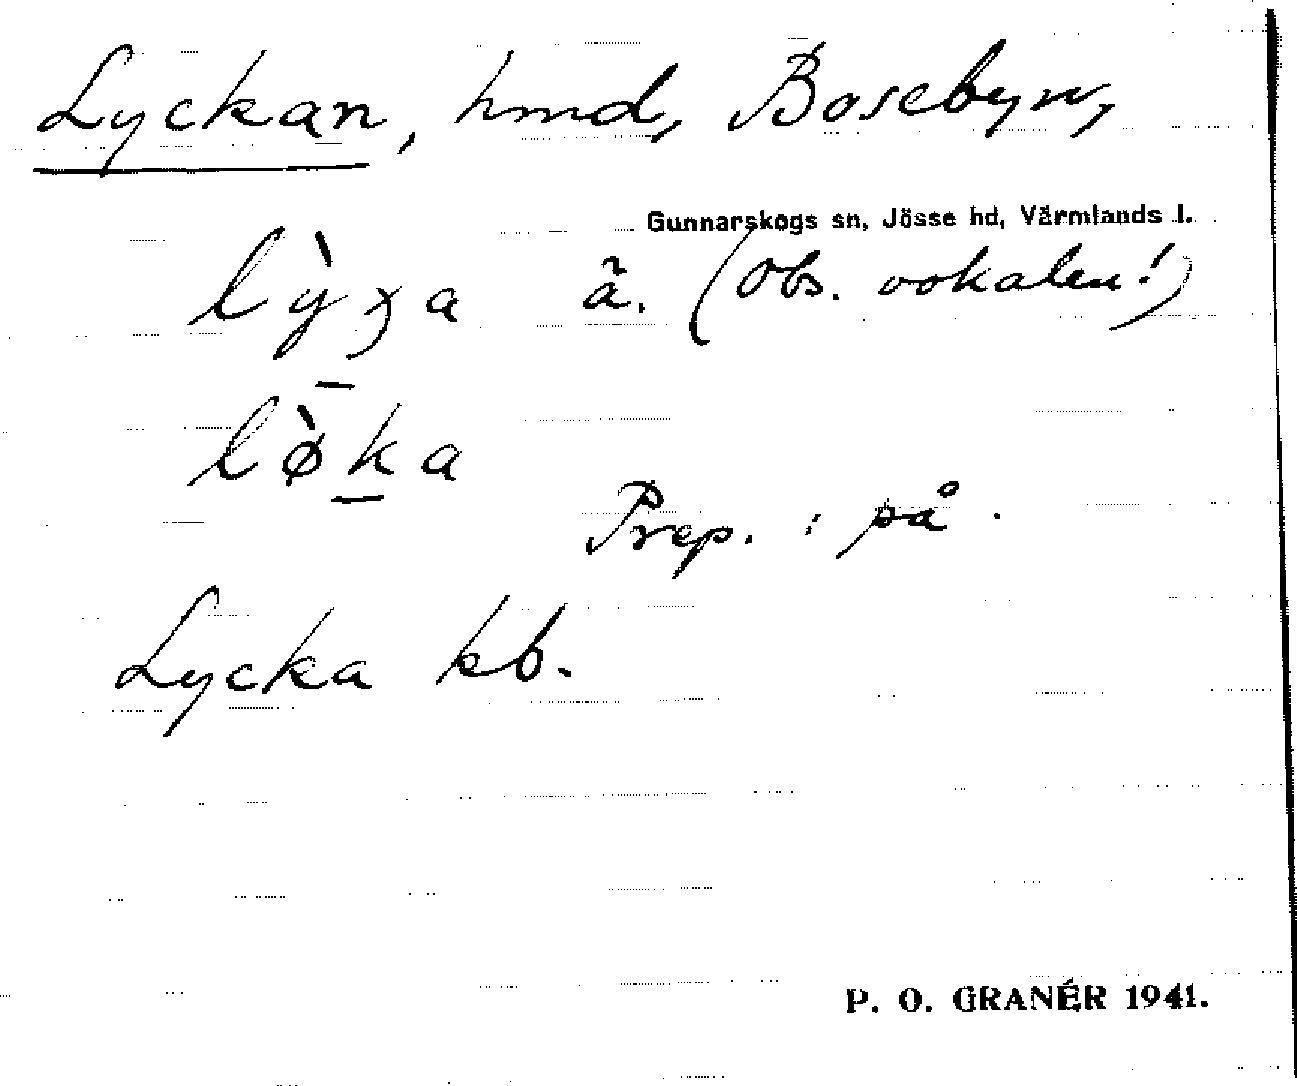 Lyckan, hmd, Bosebyn,
Gunnarskogs sn, Jösse hd, Värmlands l.
ã. (Obs. vokalen!)
lø̀ka
Prep.: på.
Lycka kb.
P. O. GRANÉR 1941.